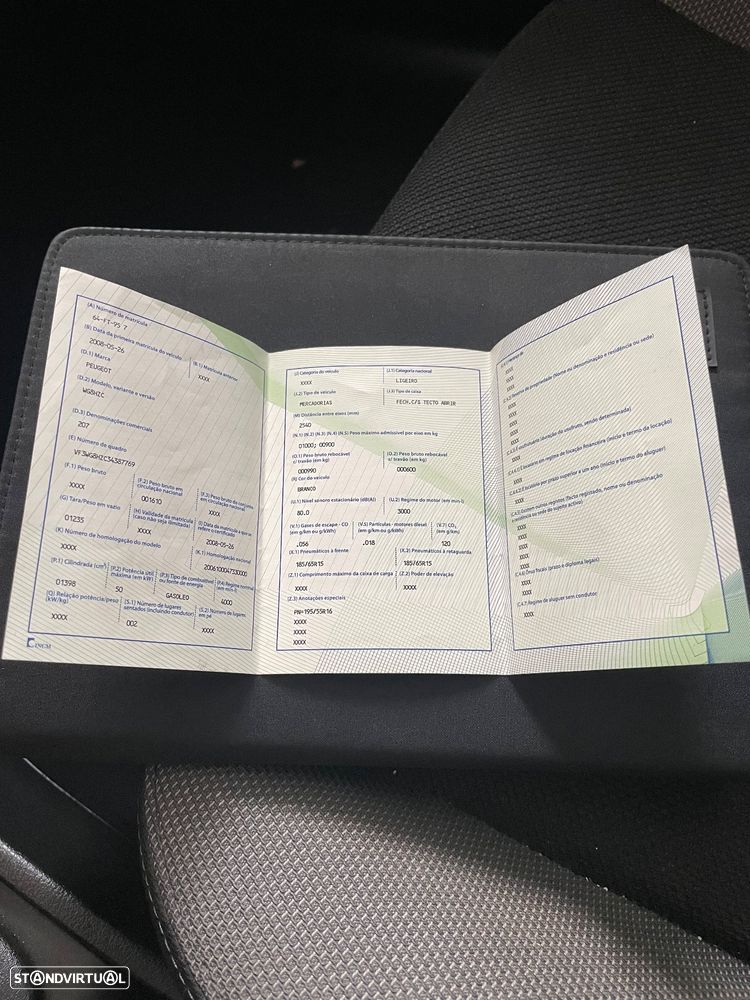 (A) Número de matrícula
64-FT-95 7
(B) Data da primeira matrícula do veículo
(B.1) Matrícula anterior
2008-05-26
XXXX
(D.1) Marca
PEUGEOT
(D.2) Modelo, variante e versão
WG8HZC
(D.3) Denominações comerciais
207
(E) Número de quadro
VF3WG8HZC34387769
(F.1) Peso bruto
(F.2) Peso bruto em circulação nacional
(F.3) Peso bruto do conjunto em circulação nacional
XXXX
001610
XXXX
(G) Tara/Peso em vazio
(H) Validade da matrícula (caso não seja ilimitada)
(I) Data da matrícula a que se refere o certificado
01235
XXXX
2008-05-26
(K) Número de homologação do modelo
(K.1) Homologação nacional
XXXX
200610004733000
(P.1) Cilindrada (cm³)
(P.2) Potência útil máxima (em kW)
(P.3) Tipo de combustível ou fonte de energia
(P.4) Regime nominal (em min-1)
01398
50
GASOLEO
4000
(Q) Relação potência/peso (kW/kg)
(S.1) Número de lugares sentados (incluindo condutor)
(S.2) Número de lugares em pé
XXXX
002
XXXX
INCM
(J) Categoria do veículo
(J.1) Categoria nacional
XXXX
LIGEIRO
(J.2) Tipo de veículo
(J.3) Tipo de caixa
MERCADORIAS
FECH.C/S TECTO ABRIR
(M) Distância entre eixos (mm)
2540
(N.1) (N.2) (N.3) (N.4) (N.5) Peso máximo admissível por eixo em kg
01000; 00900
(O.1) Peso bruto rebocável c/ travão (em kg)
(O.2) Peso bruto rebocável s/ travão (em kg)
000990
000600
(R) Cor do veículo
BRANCO
(U.1) Nível sonoro estacionário (dB(A))
(U.2) Regime do motor (em min-1)
80.0
3000
(V.1) Gases de escape - CO (em g/km ou g/kWh)
(V.5) Partículas - motores diesel (em g/km ou g/kWh)
(V.7) CO₂ (em g/km)
.056
.018
120
(X.1) Pneumáticos à frente
(X.2) Pneumáticos à retaguarda
185/65R15
185/65R15
(Z.1) Comprimento máximo da caixa de carga
(Z.2) Poder de elevação
XXXX
XXXX
(Z.3) Anotações especiais
PN=195/55R16
XXXX
XXXX
XXXX
XXXX
XXXX
XXXX
(Nome ou denominação e residência ou sede)
XXXX
XXXX
XXXX
XXXX
XXXX
XXXX
XXXX
XXXX
XXXX
XXXX
XXXX
XXXX
XXXX
(C.4.6) Ónus fiscais (prazo e diploma legais)
XXXX
XXXX
(C.4.7) Regime de aluguer sem condutor
XXXX
STANDVIRTUAL